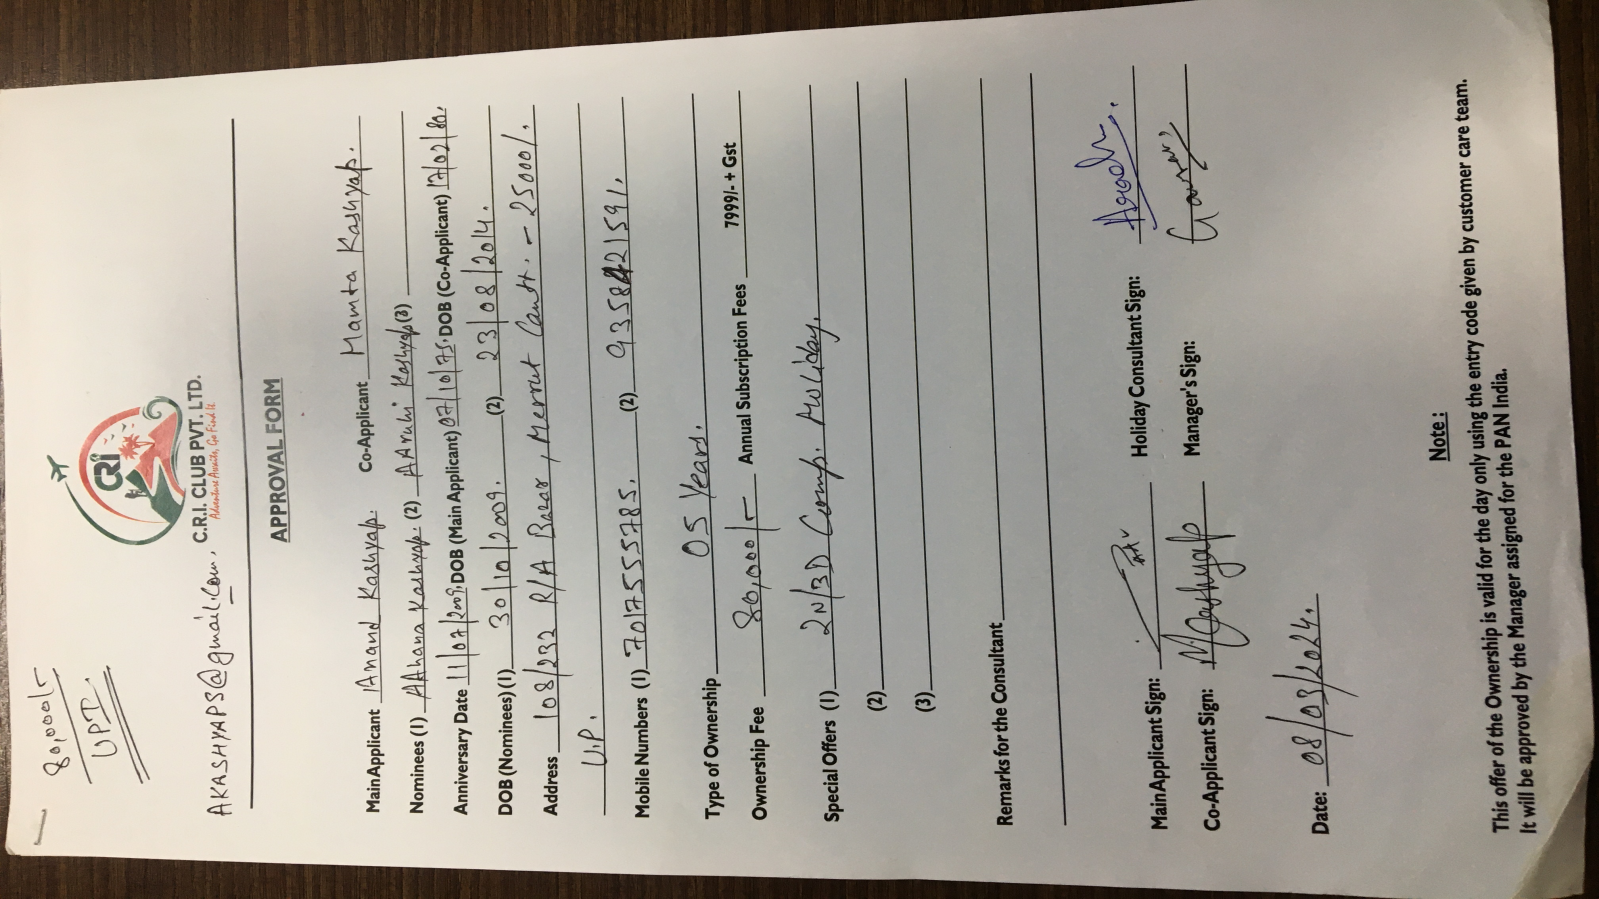 80,000/-
UPI.
CRI
C.R.I. CLUB PVT. LTD.
Adventure Awaits, Go Find It
AKASHYAPS@gmail.com,
APPROVAL FORM
Main Applicant Anand Kashyap. Co-Applicant Mamta Kashyap.
Nominees (1) AAhana Kashyap. (2) AAruhi Kashyap (3)
Anniversary Date 11/07/2009. DOB (Main Applicant) 07/10/75. DOB (Co-Applicant) 17/02/80.
DOB (Nominees) (1) 30/10/2009. (2) 23/08/2014.
Address 108/232 R/A Bazar, Merrut Cantt. - 25000/.
U.P.
Mobile Numbers (1) 7017555785. (2) 9358421591.
Type of Ownership 05 Years.
Ownership Fee 80,000/- Annual Subscription Fees 7999/- + Gst
Special Offers (1) 2N/3D Comp. Holiday.
(2)
(3)
Remarks for the Consultant
Main Applicant Sign: Holiday Consultant Sign:
Co-Applicant Sign: MKashyap Manager's Sign: Gaurav
Date: 08/03/2024.
Note :
This offer of the Ownership is valid for the day only using the entry code given by customer care team.
It will be approved by the Manager assigned for the PAN India.